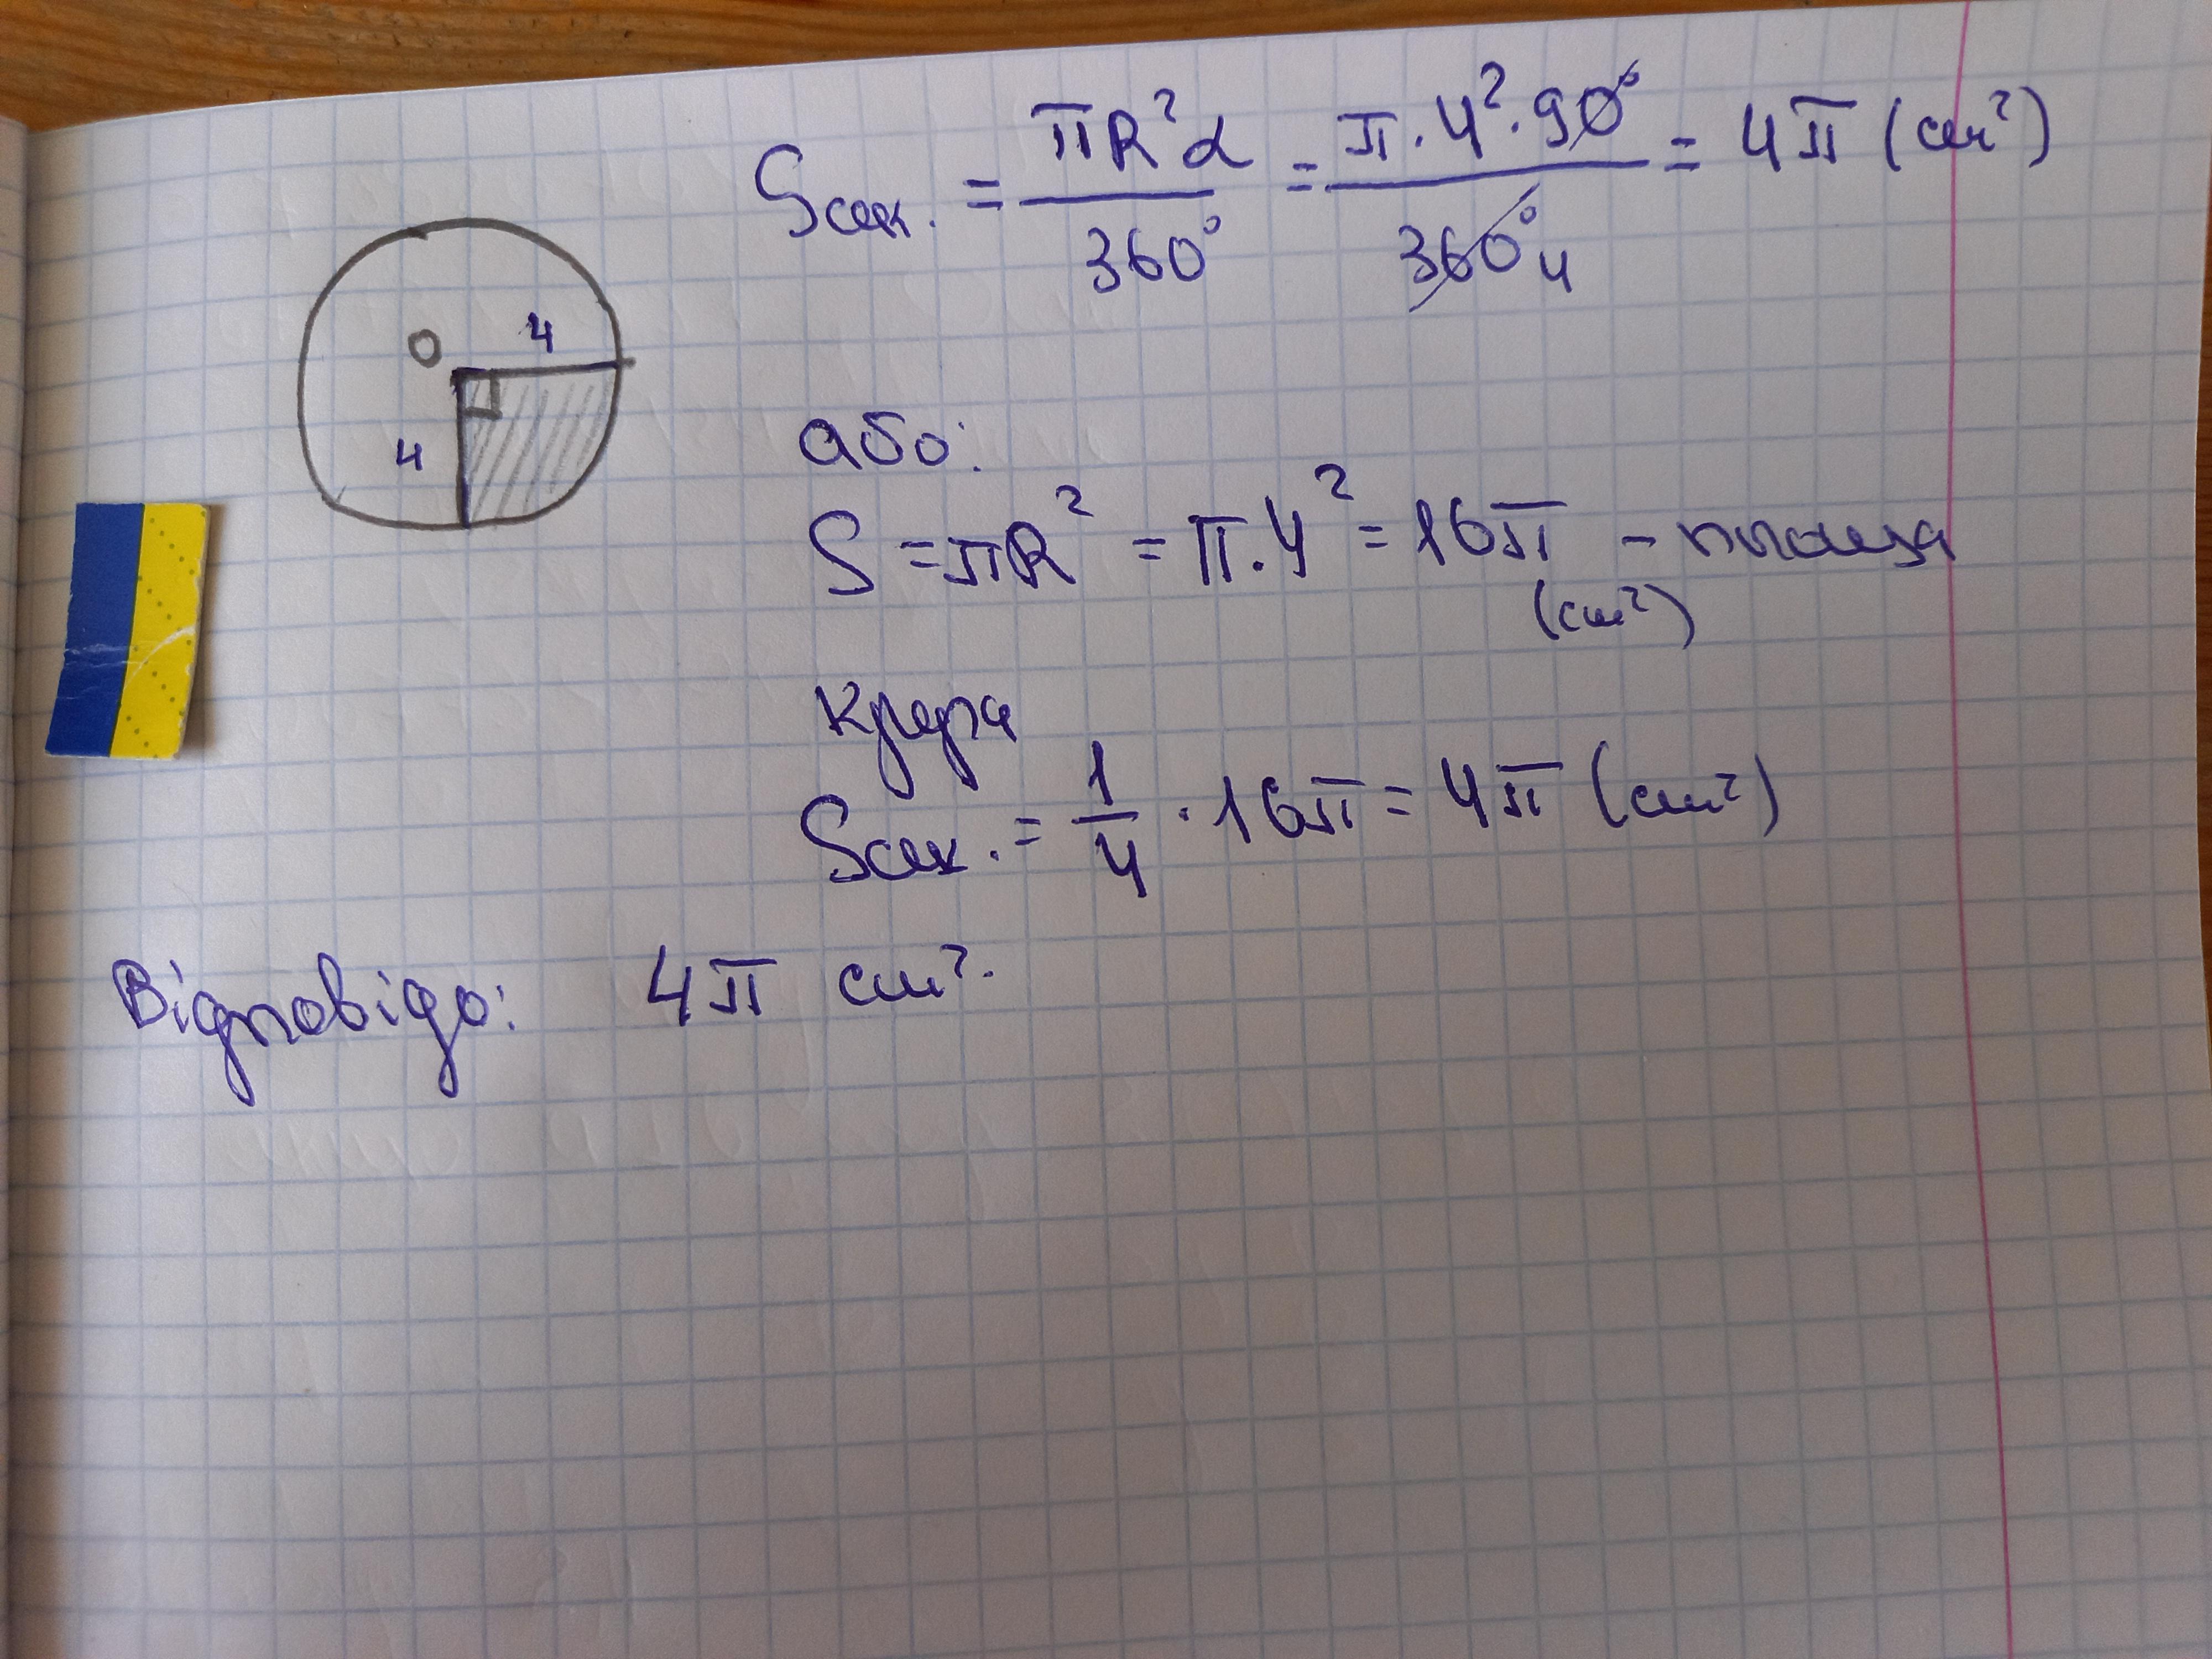 Sсек. = πR²α / 360° = π·4²·90° / 360° 4 = 4π (см²)
O
4
4
або:
S = πR² = π·4² = 16π - площа
(см²)
круга
Sсек. = 1/4 · 16π = 4π (см²)
Відповідь: 4π см².